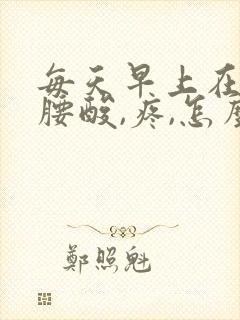 每天早上在
腰酸,疼,怎麼
鄭照魁